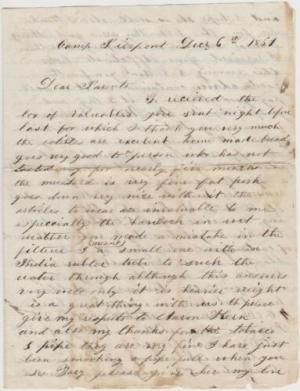 Camp Pierpont Decr 6th 1861
Dear Parents
I recieved the
box of valuables you sent night before
last for which I thank you very much
the eatables are excelent home made bread
goes very good to person who has not
tasted any for nearly five months
the mustard is very fine fat pork
goes down very nice with it the
articles to wear are valuable to me
especially the in wet
weather you made a mistake in the
I want a small one with an
India rubber tube to suck the
water through although this answers
very well only it is heavier weight
is a great thing with us the please
give my respects to Aaron
and also my thanks for the tobacco
& pipe they are very fine I have just
been smoking a pipe full when you
see please give her my love